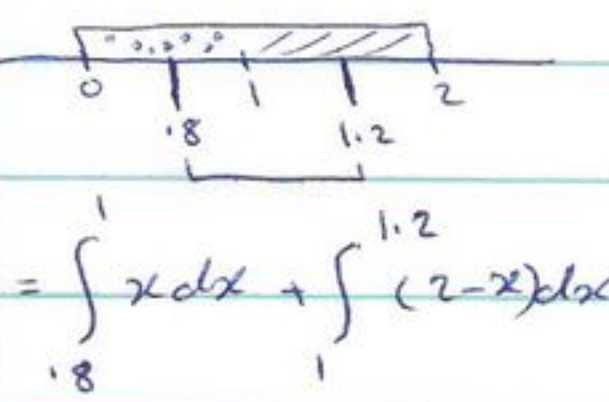 0 1 2
.8 1.2
= ∫_{.8}^{1} x dx + ∫_{1}^{1.2} (2-x)dx